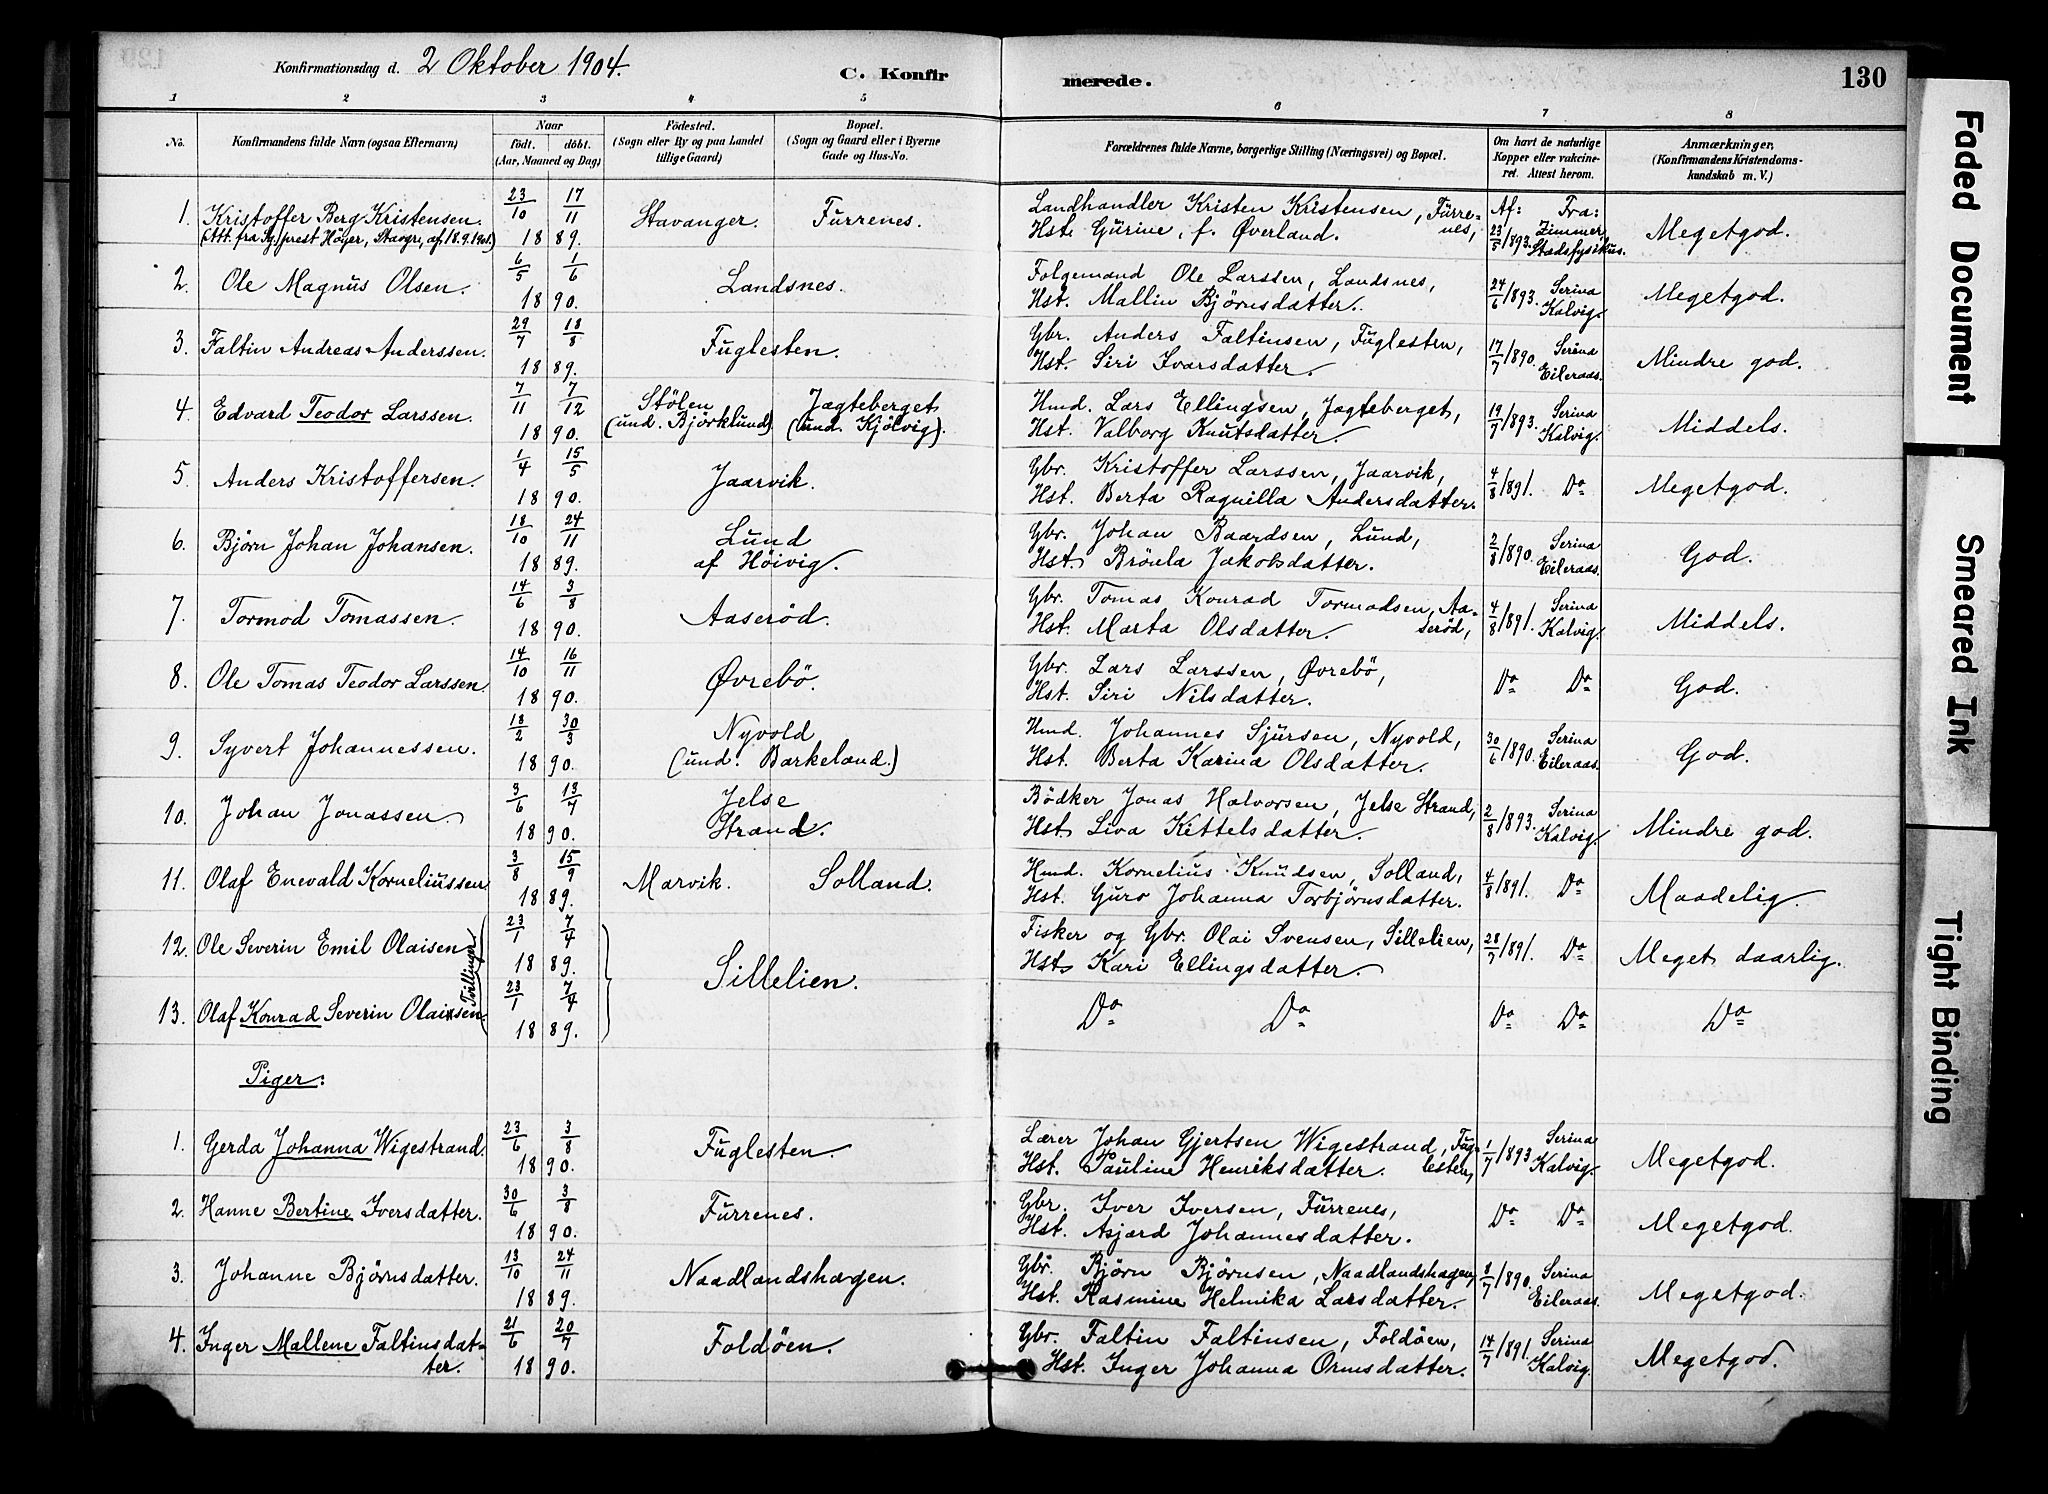 Konfirmationsdag d. 2 Oktober 1904.
C. Konfir
merede.
130
1 2 3 4 5 6 7 8
No.
Konfirmandens fulde Navn (ogsaa Efternavn)
Naar
födt. döbt.
(Aar, Maaned og Dag)
Födested.
(Sogn eller By og paa Landet
tillige Gaard)
Bopæl.
(Sogn og Gaard eller i Byerne
Gade og Hus-No.
Forældrenes fulde Navne, borgerlige Stilling (Næringsvei) og Bopæl.
Om havt de naturlige
Kopper eller vakcine-
ret. Attest herom.
Anmærkninger,
(Konfirmandens Kristendoms-
kundskab m. V.)
1. Kristoffer Berg Kristensen. 23/10 17/11 Stavanger. Furrenes. Landhandler Kristen Kristensen, Furre- Af: Fra:
(Att. fra prest Höyer, Stavgr, af 18.9.1901.) 1889. Hst. Gurine, f. Øverland. nes, 23/5/893. Zimmer, Stadsfysikus. Megetgod.
2. Ole Magnus Olsen. 6/5 1/6 Landsnes. Folgemand Ole Larssen, Landsnes, 24/6/893. Serina
1890. Hst. Mallin Björnsdatter. Kalvig. Megetgod.
3. Faltin Andreas Anderssen. 29/7 18/8 Fuglesten. Gbr. Anders Faltinsen, Fuglesten, 17/7/890. Serina
1889. Hst. Siri Ivarsdatter. Eileraas. Mindre god.
4. Edvard Teodor Larssen. 7/11 7/12 Stölen Jagteberget Hmd. Lars Ellingsen, Jagteberget, 19/7/893. Serina
1890. (und. Björklund) (und. Kjölvig). Hst. Valborg Knutsdatter. Kalvig. Middels.
5. Anders Kristoffersen. 1/4 15/5 Jaarvik. Gbr. Kristoffer Larssen, Jaarvik, 4/8/891. Do
1890. Hst. Berta Ragnilla Andersdatter. Megetgod.
6. Björn Johan Johansen. 18/10 24/11 Lund Gbr. Johan Baardsen, Lund, 2/8/890. Serina
1889. af Höivig. Hst. Brönla Jakobsdatter. Eileraas. God.
7. Tormod Tomassen. 14/6 3/8 Aaseröd. Gbr. Tomas Konrad Tormodsen, Aa- 4/8/891. Serina
1890. Hst. Marta Olsdatter. seröd, Kalvig. Middels.
8. Ole Tomas Teodor Larssen. 14/10 16/11 Øvrebö. Gbr. Lars Larssen, Øvrebö, Do Do
1890. Hst. Siri Nilsdatter. God.
9. Syvert Johannessen. 18/2 30/3 Nyvold Hmd. Johannes Sjursen, Nyvold, 30/6/890. Serina
1890. (und. Barkeland.) Hst. Berta Karina Olsdatter. Eileraas. God.
10. Johan Jonassen. 3/6 13/7 Jelse Bödker Jonas Halvorsen, Jelse Strand, 2/8/893. Serina
1890. Strand. Hst. Siva Kittelsdatter. Kalvig. Mindre god.
11. Olaf Enevald Korneliussen 3/8 15/9 Marvik. Solland. Hmd. Kornelius Knudsen, Solland, 4/8/891. Do
1889. Hst. Guro Johanna Torbjörnsdatter. Maadelig.
12. Ole Severin Emil Olaisen 23/1 7/4 Fisker og Gbr. Olai Svensen, Sillelien, 28/7/891. Do
Tvillinger. 1889. Sillelien. Hst. Kari Ellingsdatter. Meget daarlig.
13. Olaf Konrad Severin Olaisen. 23/1 7/4 Do Do Do Do Do
1889.
Piger:
1. Gerda Johanna Wigestrand. 23/6 3/8 Fuglesten. Lærer Johan Gjertsen Wigestrand, Fug- 1/7/893 Serina
1890. Hst. Pauline Henriksdatter. lesten, Kalvig. Megetgod.
2. Hanne Bertine Iversdatter. 30/6 3/8 Furrenes. Gbr. Iver Iversen, Furrenes, Do Do
1890. Hst. Asjærd Johannesdatter. Megetgod.
3. Johanne Björnsdatter. 13/10 24/11 Naadlandshagen. Gbr. Björn Björnsen, Naadlandshagen, 8/7/890. Serina
1889. Hst. Rasmine Helmika Larsdatter. Eileraas. Megetgod.
4. Inger Mallene Faltinsdat- 21/6 20/7 Foldöen. Gbr. Faltin Faltinsen, Foldöen, 14/7/891. Serina
ter. 1890. Hst. Inger Johanna Ormsdatter. Kalvig. Megetgod.
Faded Document
Smeared Ink
Tight Binding